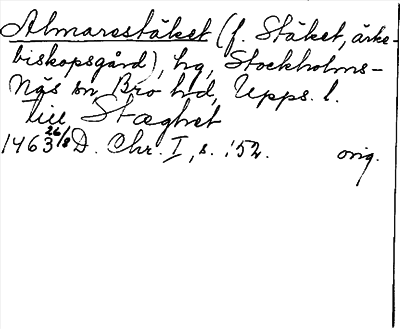 Almarestäket (f. Stäket, ärke-
biskopsgård), hg, Stockholms-
Näs sn Bro hd, Upps. l.
till Stæghet
1463 26/8 D. Chr. I, s. 152. orig.